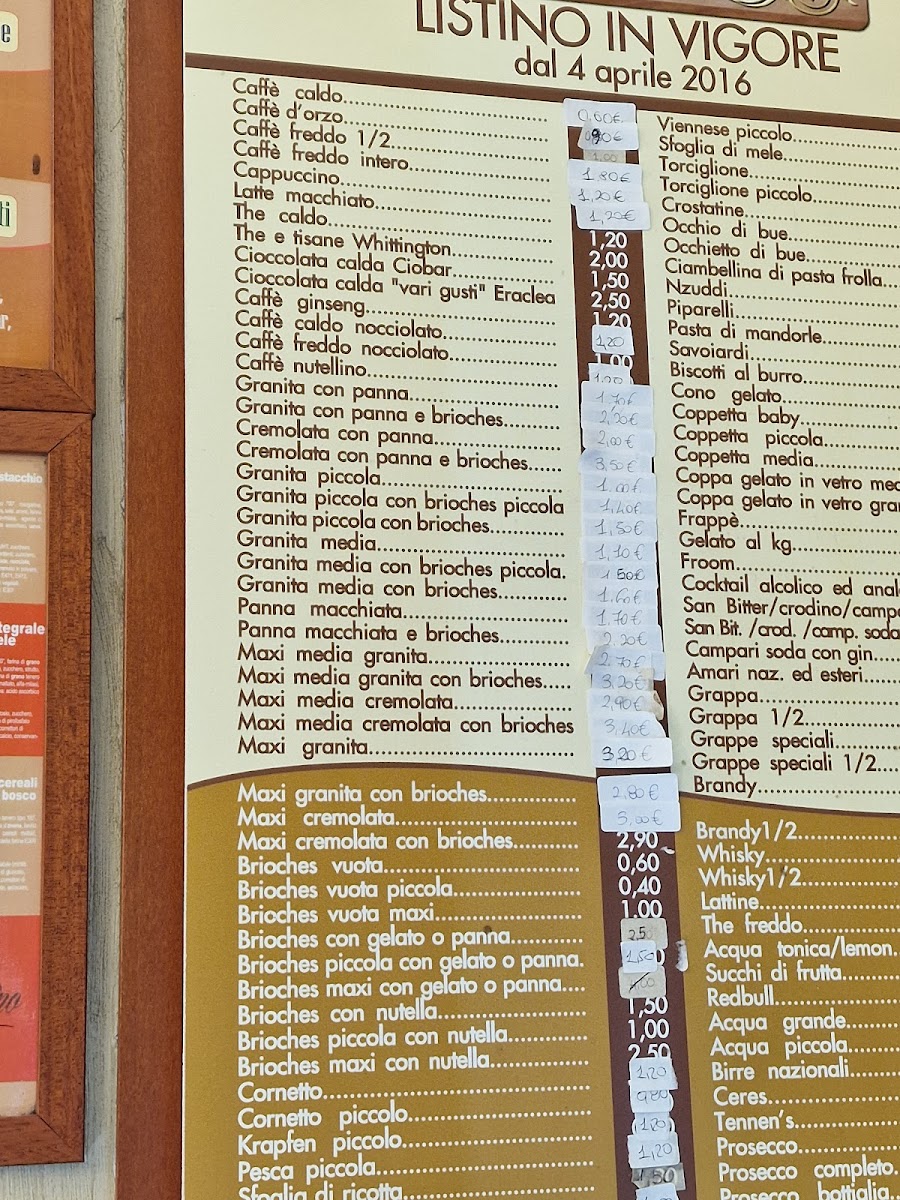 LISTINO IN VIGORE
dal 4 aprile 2016
Caffè caldo 0,60€
Caffè d'orzo 0,90€
Caffè freddo 1/2 1,00
Caffè freddo intero 1,80€
Cappuccino 1,20€
Latte macchiato 1,20€
The caldo 1,20
The e tisane Whittington 2,00
Cioccolata calda Ciobar 1,50
Cioccolata calda "vari gusti" Eraclea 2,50
Caffè ginseng 1,20
Caffè caldo nocciolato 1,20
Caffè freddo nocciolato 1,00
Caffè nutellino 1,20
Granita con panna 1,70€
Granita con panna e brioches 2,20€
Cremolata con panna 2,00€
Cremolata con panna e brioches 3,50€
Granita piccola 1,00€
Granita piccola con brioches piccola 1,40€
Granita piccola con brioches 1,50€
Granita media 1,10€
Granita media con brioches piccola. 1,50€
Granita media con brioches 1,60€
Panna macchiata 1,70€
Panna macchiata e brioches 2,20€
Maxi media granita 2,70€
Maxi media granita con brioches 3,20€
Maxi media cremolata 2,90€
Maxi media cremolata con brioches 3,40€
Maxi granita 3,20€
Maxi granita con brioches 2,80€
Maxi cremolata 3,00€
Maxi cremolata con brioches 2,90
Brioches vuota 0,60
Brioches vuota piccola 0,40
Brioches vuota maxi 1,00
Brioches con gelato o panna 2,5
Brioches piccola con gelato o panna. 1,50
Brioches maxi con gelato o panna
Brioches con nutella 1,50
Brioches piccola con nutella 1,00
Brioches maxi con nutella 2,50
Cornetto 1,20
Cornetto piccolo 0,80
Krapfen piccolo 1,20
Pesca piccola 1,20
Sfoglia di ricotta 1,50
Viennese piccolo
Sfoglia di mele
Torciglione
Torciglione piccolo
Crostatine
Occhio di bue
Occhietto di bue
Ciambellina di pasta frolla
Nzuddi
Piparelli
Pasta di mandorle
Savoiardi
Biscotti al burro
Cono gelato
Coppetta baby
Coppetta piccola
Coppetta media
Coppa gelato in vetro med
Coppa gelato in vetro gran
Frappè
Gelato al kg
Froom
Cocktail alcolico ed anal
San Bitter/crodino/campa
San Bit. /crod. /camp. soda
Campari soda con gin
Amari naz. ed esteri
Grappa
Grappa 1/2
Grappe speciali
Grappe speciali 1/2
Brandy
Brandy1/2
Whisky
Whisky1/2
Lattine
The freddo
Acqua tonica/lemon.
Succhi di frutta
Redbull
Acqua grande
Acqua piccola
Birre nazionali
Ceres
Tennen's
Prosecco
Prosecco completo.
Prosecco bottiglia
stacchio
tegrale
ele
cereali
bosco